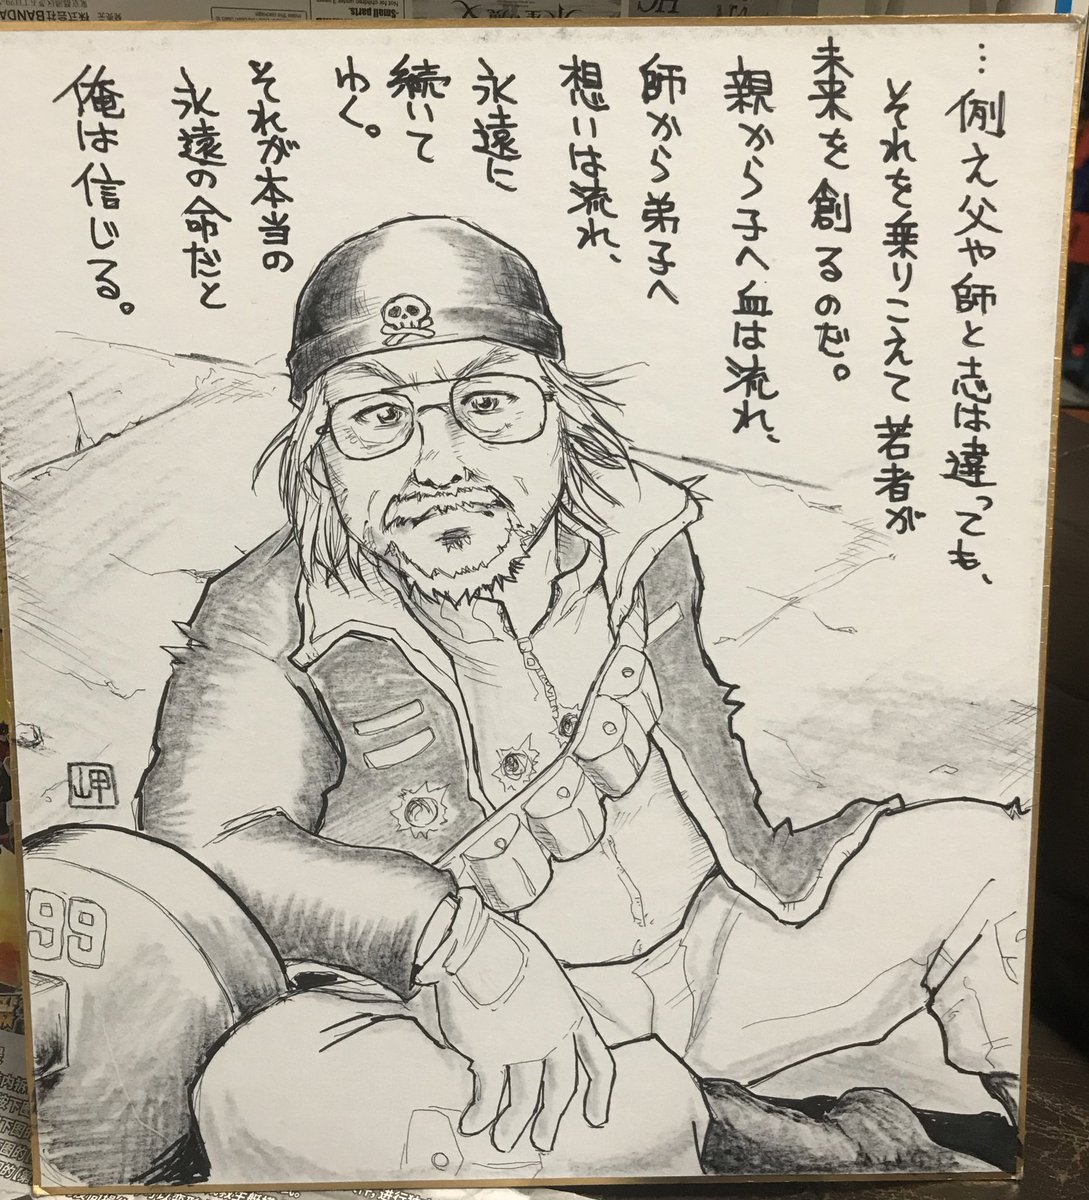 …例え父や師と志は違っても、
それを乗りこえて若者が
未来を創るのだ。
親から子へ血は流れ、
師から弟子へ
想いは流れ、
永遠に
続いて
ゆく。
それが本当の
永遠の命だと
俺は信じる。
岬
99
Small parts.